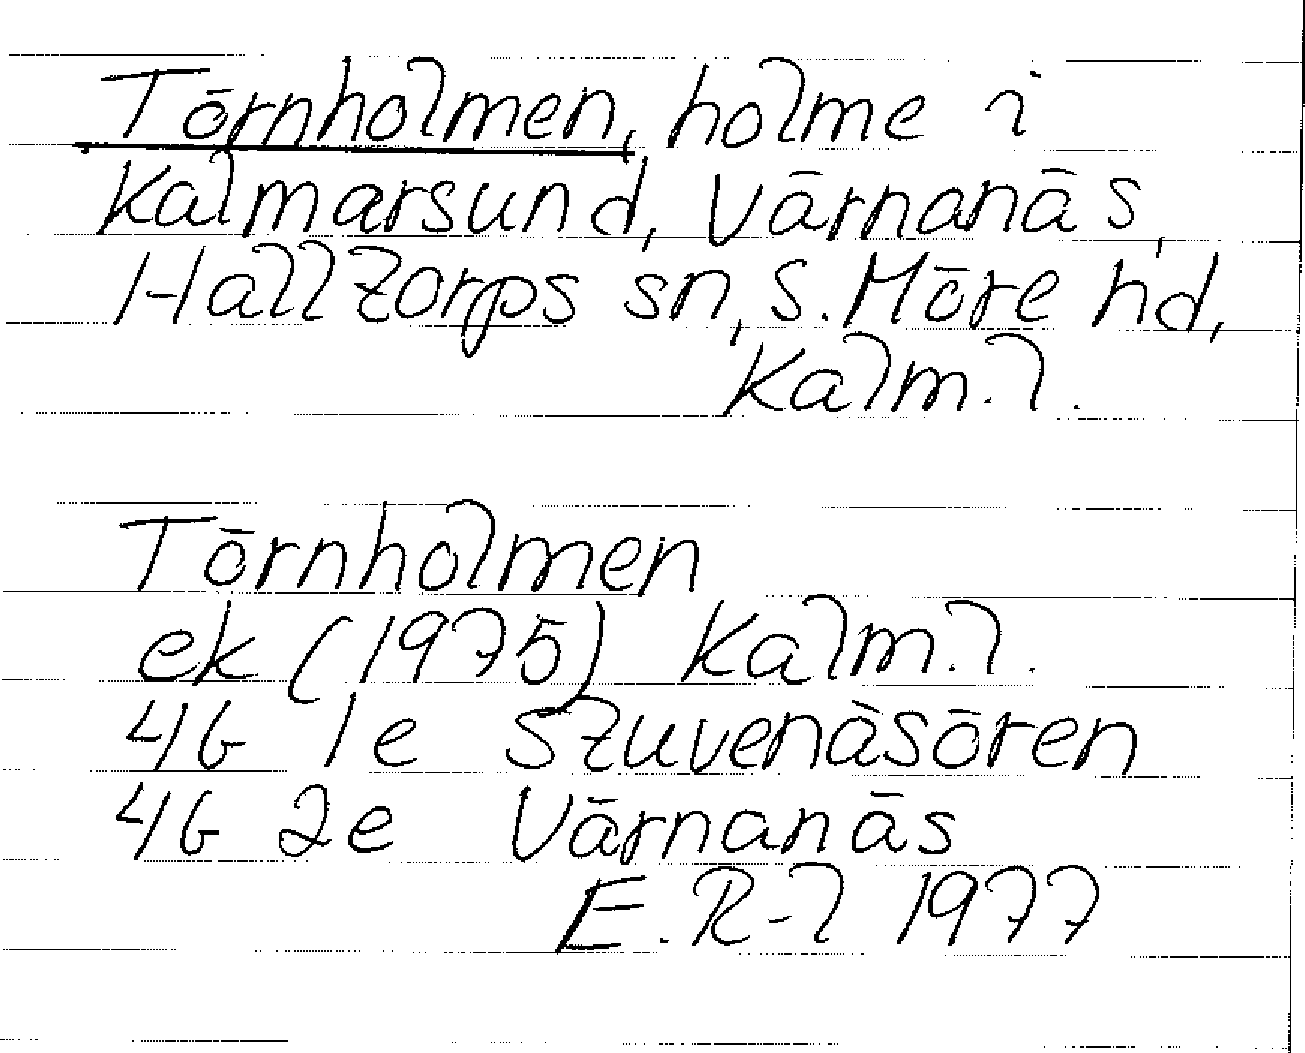 Törnholmen, holme i
Kalmarsund, Värnanäs,
Halltorps sn, S. Möre hd,
Kalm. l.
Törnholmen
ek (1975) Kalm. l.
4G 1e Stuvenäsören
4G 2e Värnanäs
E. R-l 1977